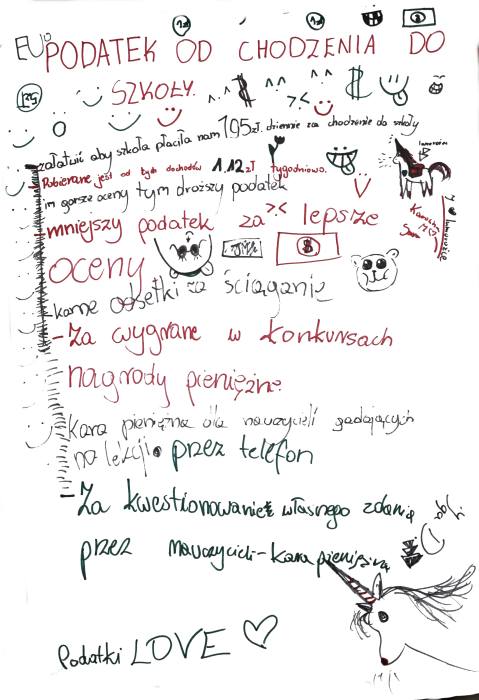 EU PODATEK OD CHODZENIA DO
SZKOŁY.
załatwić aby szkoła płaciła nam 1,95zł. dziennie za chodzenie do szkoły
Pobierane jest od tych dochodów 1,12zł tygodniowo.
im gorsze oceny tym droższy podatek
mniejszy podatek za lepsze
oceny
-karne odsetki za ściąganie
-Za wygrane w konkursach
nagrody pieniężne
kara pieniężna dla nauczycieli gadających
na lekcji przez telefon
-Za kwestionowanie własnego zdania
przez nauczycieli-kara pieniężna
Podatki LOVE